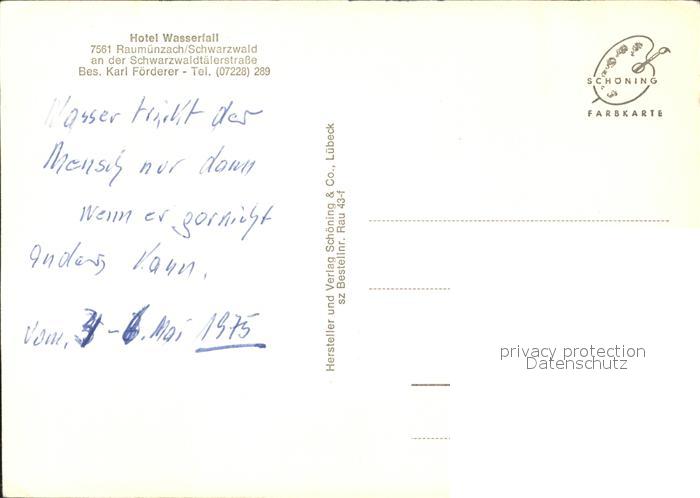 Hotel Wasserfall
7561 Raumünzach/Schwarzwald
an der Schwarzwaldtälerstraße
Bes. Karl Förderer - Tel. (07228) 289
Wasser trinkt der
Mensch nur dann
wenn er garnicht
anders kann.
vom. - . Mai 1975
Hersteller und Verlag Schöning & Co., Lübeck
sz Bestellnr. Rau 43-f
SCHÖNING
FARBKARTE
privacy protection
Datenschutz